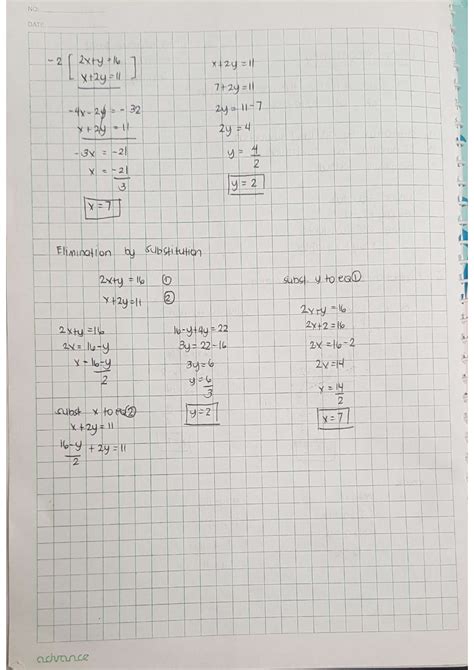 NO:
DATE:
-2 [ 2x+y=16
x+2y=11 ]
-4x-2y=-32
x+2y=11
-3x = -21
x = -21
3
x=7
x+2y=11
7+2y=11
2y=11-7
2y=4
y= 4
2
y=2
Elimination by Substitution
2x+y=16 ①
x+2y=11 ②
2x+y=16
2x=16-y
x=16-y
2
subst x to eq②
x+2y=11
16-y
2 +2y=11
16-y+4y=22
3y=22-16
3y=6
y=6
3
y=2
subst y to eq①
2x+y=16
2x+2=16
2x=16-2
2x=14
x=14
2
x=7
advance